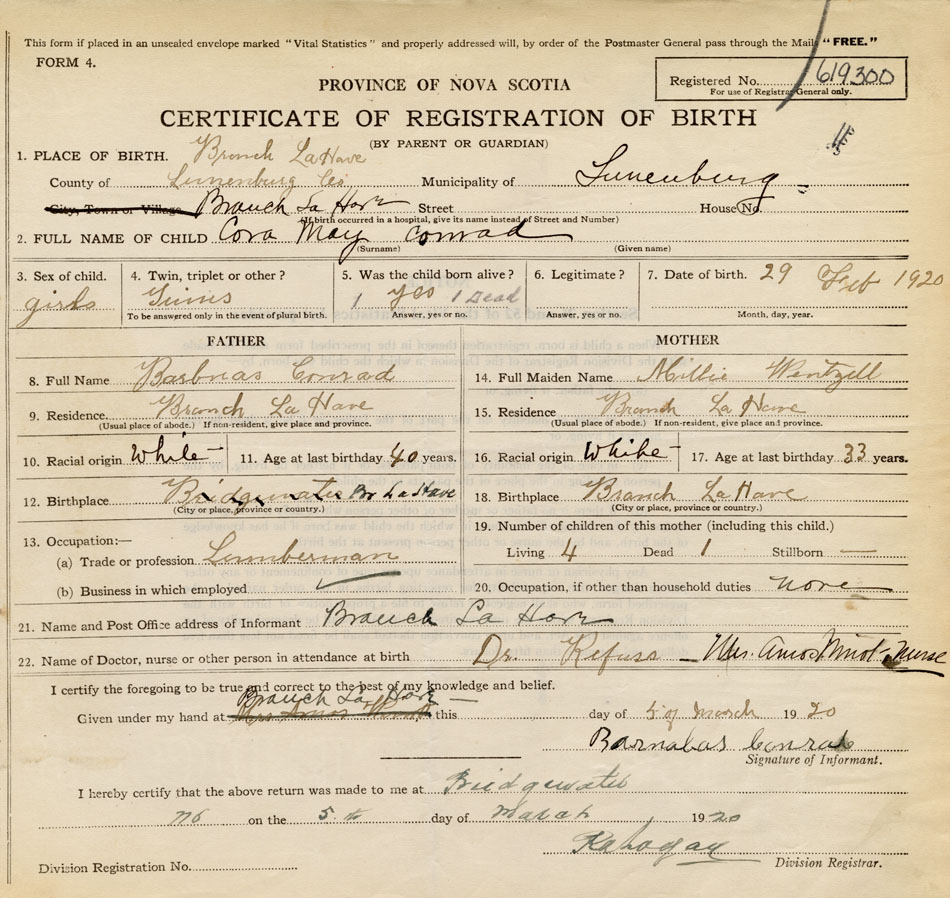 This form if placed in an unsealed envelope marked "Vital Statistics" and properly addressed will, by order of the Postmaster General pass through the Mails "FREE."
FORM 4.
PROVINCE OF NOVA SCOTIA
Registered No. 619300
For use of Registrar General only.
CERTIFICATE OF REGISTRATION OF BIRTH
(BY PARENT OR GUARDIAN)
1. PLACE OF BIRTH. Branch LaHave
County of Lunenburg Co Municipality of Lunenburg
City, Town or Village Branch La Have Street House No.
(If birth occurred in a hospital, give its name instead of Street and Number)
2. FULL NAME OF CHILD Cora May Conrad
(Surname) (Given name)
3. Sex of child. 4. Twin, triplet or other? 5. Was the child born alive? 6. Legitimate? 7. Date of birth. 29 Feb 1920
girls 1 yes 1 Dead
To be answered only in the event of plural birth. Answer, yes or no. Answer, yes or no. Month, day, year.
FATHER MOTHER
8. Full Name Conrad 14. Full Maiden Name Wentzell
9. Residence. Branch La Have 15. Residence Branch La Have
(Usual place of abode.) If non-resident, give place and province. (Usual place of abode.) If non-resident, give place and province.
10. Racial origin White 11. Age at last birthday 40 years. 16. Racial origin White 17. Age at last birthday 33 years.
12. Birthplace Bridgewater Br La Have 18. Birthplace Branch La Have
(City or place, province or country.) (City or place, province or country.)
13. Occupation:— 19. Number of children of this mother (including this child.)
(a) Trade or profession Lumberman Living 4 Dead 1 Stillborn —
(b) Business in which employed 20. Occupation, if other than household duties none
21. Name and Post Office address of Informant Branch La Have
22. Name of Doctor, nurse or other person in attendance at birth Dr. — Mrs. Amos Nurse
I certify the foregoing to be true and correct to the best of my knowledge and belief.
Branch La Have
Given under my hand at Mrs Amos this day of 5 of March 1920
Barnabas Conrad
Signature of Informant.
I hereby certify that the above return was made to me at Bridgewater
NS on the 5th day of March 1920
Division Registration No. Division Registrar.